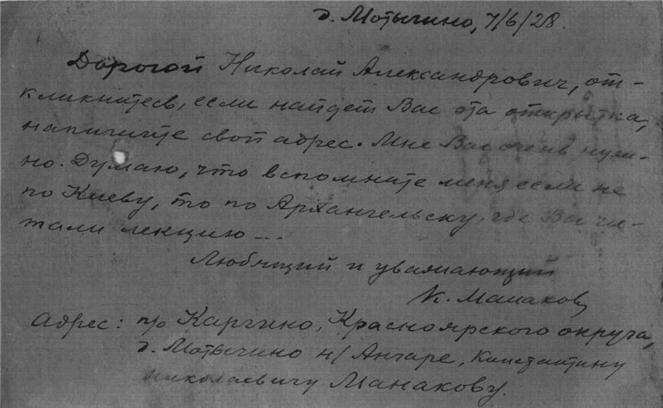 д. Мотыгино, 7/6/28.
Дорогой Николай Александрович, от-
кликнитесь, если найдет Вас эта открытка,
напишите свой адрес. Мне Вы очень нуж-
но. Думаю, что вспомните меня если не
по Киеву, то по Архангельску, где Вы чи-
тали лекцию ---
Любящий и уважающий
К. Манаков
Адрес: п/о Каргино, Красноярского округа,
д. Мотыгино н/Ангаре, Константину
Николаевичу Манакову.